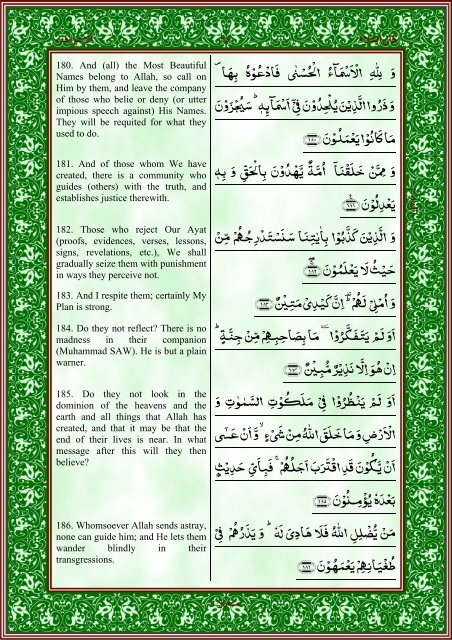 180. And (all) the Most Beautiful
Names belong to Allah, so call on
Him by them, and leave the company
of those who belie or deny (or utter
impious speech against) His Names.
They will be requited for what they
used to do.
وَ لِلّٰهِ الْاَسْمَآءُ الْحُسْنٰى فَادْعُوْهُ بِهَا ۪
وَ ذَرُوا الَّذِيْنَ يُلْحِدُوْنَ فِيْۤ اَسْمَآىِٕهٖ ؕ سَيُجْزَوْنَ
مَا كَانُوْا يَعْمَلُوْنَ ﴿۱۸۰﴾
181. And of those whom We have
created, there is a community who
guides (others) with the truth, and
establishes justice therewith.
وَ مِمَّنْ خَلَقْنَاۤ اُمَّةٌ يَّهْدُوْنَ بِالْحَقِّ وَ بِهٖ
يَعْدِلُوْنَ ﴿۱۸۱﴾
182. Those who reject Our Ayat
(proofs, evidences, verses, lessons,
signs, revelations, etc.), We shall
gradually seize them with punishment
in ways they perceive not.
وَ الَّذِيْنَ كَذَّبُوْا بِاٰيٰتِنَا سَنَسْتَدْرِجُهُمْ مِّنْ
حَيْثُ لَا يَعْلَمُوْنَ ﴿۱۸۲﴾
183. And I respite them; certainly My
Plan is strong.
وَ اُمْلِيْ لَهُمْ ؕ اِنَّ كَيْدِيْ مَتِيْنٌ ﴿۱۸۳﴾
184. Do they not reflect? There is no
madness in their companion
(Muhammad SAW). He is but a plain
warner.
اَوَ لَمْ يَتَفَكَّرُوْا ٚ مَا بِصَاحِبِهِمْ مِّنْ جِنَّةٍ ؕ
اِنْ هُوَ اِلَّا نَذِيْرٌ مُّبِيْنٌ ﴿۱۸۴﴾
185. Do they not look in the
dominion of the heavens and the
earth and all things that Allah has
created, and that it may be that the
end of their lives is near. In what
message after this will they then
believe?
اَوَ لَمْ يَنْظُرُوْا فِيْ مَلَكُوْتِ السَّمٰوٰتِ وَ
الْاَرْضِ وَ مَا خَلَقَ اللّٰهُ مِنْ شَيْءٍ ۙ وَّ اَنْ عَسٰۤى
اَنْ يَّكُوْنَ قَدِ اقْتَرَبَ اَجَلُهُمْ ۚ فَبِاَيِّ حَدِيْثٍۭ
بَعْدَهٗ يُؤْمِنُوْنَ ﴿۱۸۵﴾
186. Whomsoever Allah sends astray,
none can guide him; and He lets them
wander blindly in their
transgressions.
مَنْ يُّضْلِلِ اللّٰهُ فَلَا هَادِيَ لَهٗ ؕ وَ يَذَرُهُمْ فِيْ
طُغْيَانِهِمْ يَعْمَهُوْنَ ﴿۱۸۶﴾